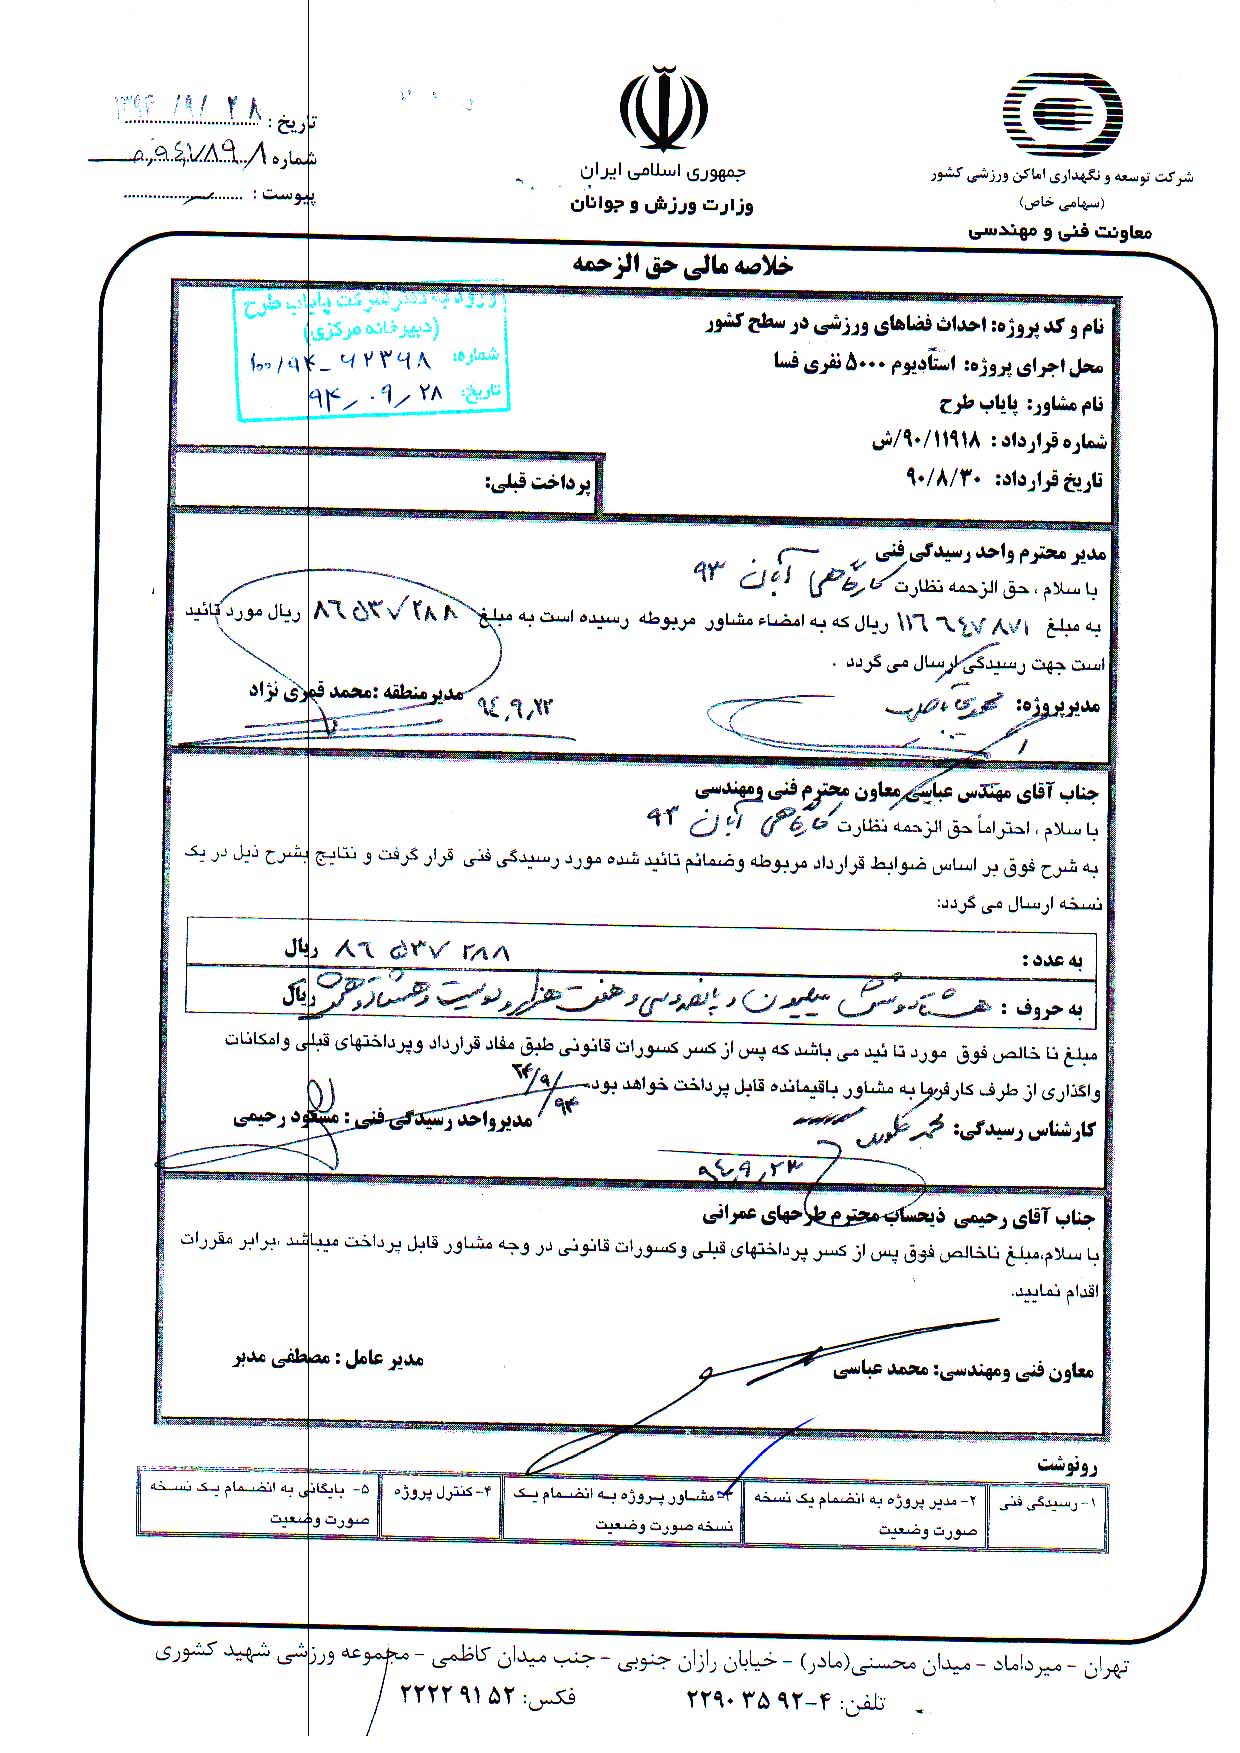 شرکت توسعه و نگهداری اماکن ورزشی کشور
(سهامی خاص)
معاونت فنی و مهندسی
جمهوری اسلامی ایران
وزارت ورزش و جوانان
تاریخ : ۱۳۹۴/۹/۲۸
شماره
پیوست :
خلاصه مالی حق الزحمه
نام و کد پروژه: احداث فضاهای ورزشی در سطح کشور
محل اجرای پروژه: استادیوم ۵۰۰۰ نفری فسا
نام مشاور: پایاب طرح
شماره قرارداد : ۹۰/۱۱۹۱۸/ش
تاریخ قرارداد: ۹۰/۸/۳۰
ورود به دفتر شرکت پایاب طرح
(دبیرخانه مرکزی)
شماره: ۱۰۰/۹۴-۹۲۳۹۸
تاریخ: ۹۴/۰۹/۲۸
پرداخت قبلی:
مدیر محترم واحد رسیدگی فنی
با سلام ، حق الزحمه نظارت کارگاهی آبان ۹۳
به مبلغ ۱۱۶۶۴۷۸۷۱ ریال که به امضاء مشاور مربوطه رسیده است به مبلغ ۸۶۵۳۷۲۸۸ ریال مورد تائید
است جهت رسیدگی ارسال می گردد .
مدیرپروژه:
۹۴,۹,۲۲
مدیرمنطقه :محمد قمری نژاد
جناب آقای مهندس عباسی معاون محترم فنی ومهندسی
با سلام ، احتراماً حق الزحمه نظارت کارگاهی آبان ۹۳
به شرح فوق بر اساس ضوابط قرارداد مربوطه وضمائم تائید شده مورد رسیدگی فنی قرار گرفت و نتایج بشرح ذیل در یک
نسخه ارسال می گردد:
به عدد : ۸۶۵۳۷۲۸۸ ریال
به حروف : هشتادوشش میلیون و پانصدوسی و هفت هزار و دویست و هشتادوهشت ریال
مبلغ نا خالص فوق مورد تا ئید می باشد که پس از کسر کسورات قانونی طبق مفاد قرارداد وپرداختهای قبلی وامکانات
واگذاری از طرف کارفرما به مشاور باقیمانده قابل پرداخت خواهد بود.
۲۴/۹/۹۴
کارشناس رسیدگی: محمد
مدیرواحد رسیدگی فنی : مسعود رحیمی
۹۴,۹,۲۳
جناب آقای رحیمی ذیحساب محترم طرحهای عمرانی
با سلام،مبلغ ناخالص فوق پس از کسر پرداختهای قبلی وکسورات قانونی در وجه مشاور قابل پرداخت میباشد ،برابر مقررات
اقدام نمایید.
معاون فنی ومهندسی: محمد عباسی
مدیر عامل : مصطفی مدبر
رونوشت
۱- رسیدگی فنی
۲- مدیر پروژه به انضمام یک نسخه
صورت وضعیت
۳- مشاور پروژه به انضمام یک
نسخه صورت وضعیت
۴- کنترل پروژه
۵- بایگانی به انضمام یک نسخه
صورت وضعیت
تهران - میرداماد - میدان محسنی(مادر) - خیابان رازان جنوبی - جنب میدان کاظمی - مجموعه ورزشی شهید کشوری
تلفن: ۴-۲۲۹۰۳۵۹۲ فکس: ۲۲۲۲۹۱۵۲